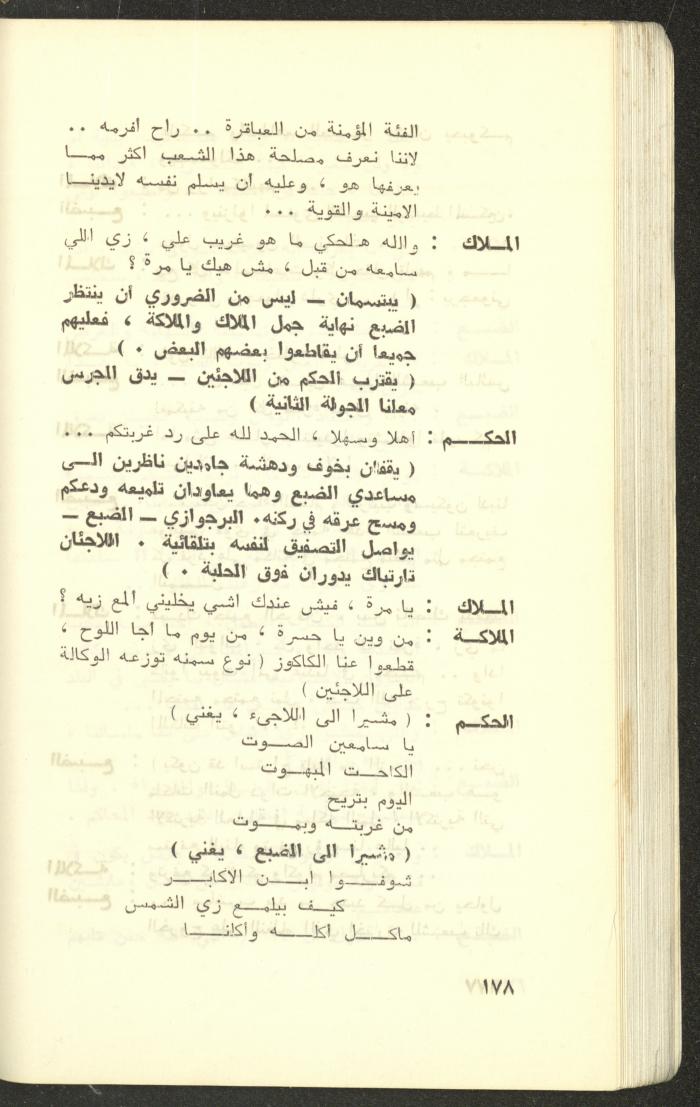 الفئة المؤمنة من العباقرة ٠٠ راح افرمه ٠٠
لاننا نعرف مصلحة هذا الشعب اكثر ممـــا
يعرفها هو ، وعليه ان يسلم نفسه لايدينـــا
الامينة والقوية ٠٠٠
المـلاك : والله هـالحكي ما هو غريب علي ، زي اللي
سامعه من قبل ، مش هيك يا مرة ؟
( يبتسمان ــ ليس من الضروري أن ينتظر
الضبع نهاية جمل الملاك والملاكة ، فعليهم
جميعا أن يقاطعوا بعضهم البعض ٠ )
( يقترب الحكم من اللاجئين ــ يدق الجرس
معلنا الجولة الثانية )
الحكـــم : أهلا وسهلا ، الحمد لله على رد غربتكم ٠٠٠
( يقفان بخوف ودهشة جامدين ناظرين الــى
مساعدي الضبع وهما يعاودان تلميعه ودعكم
ومسح عرقه في ركنه٠ البرجوازي ــ الضبع ــ
يواصل التصفيق لنفسه بتلقائية ٠ اللاجئان
تارتباك يدوران فوق الحلبة ٠ )
المـلاك : يا مرة ، فيش عندك اشي يخليني المع زيه ؟
الملاكـة : من وين يا حسرة ، من يوم ما اجا اللوح ،
قطعوا عنا الكاكوز ( نوع سمنه توزعه الوكالة
على اللاجئين )
الحكـم : ( مشيرا الى اللاجىء ، يغني )
يا سامعين الصــوت
الكاحـت المبهـوت
اليوم بتريح
من غربتــه وبمــوت
( مشيرا الى الضبع ، يغني )
شوفــــوا ابــن الاكابــر
كيـف بيلمـع زي الشمس
ماكـــل اكلــــه واكلنــــا
١٧٨